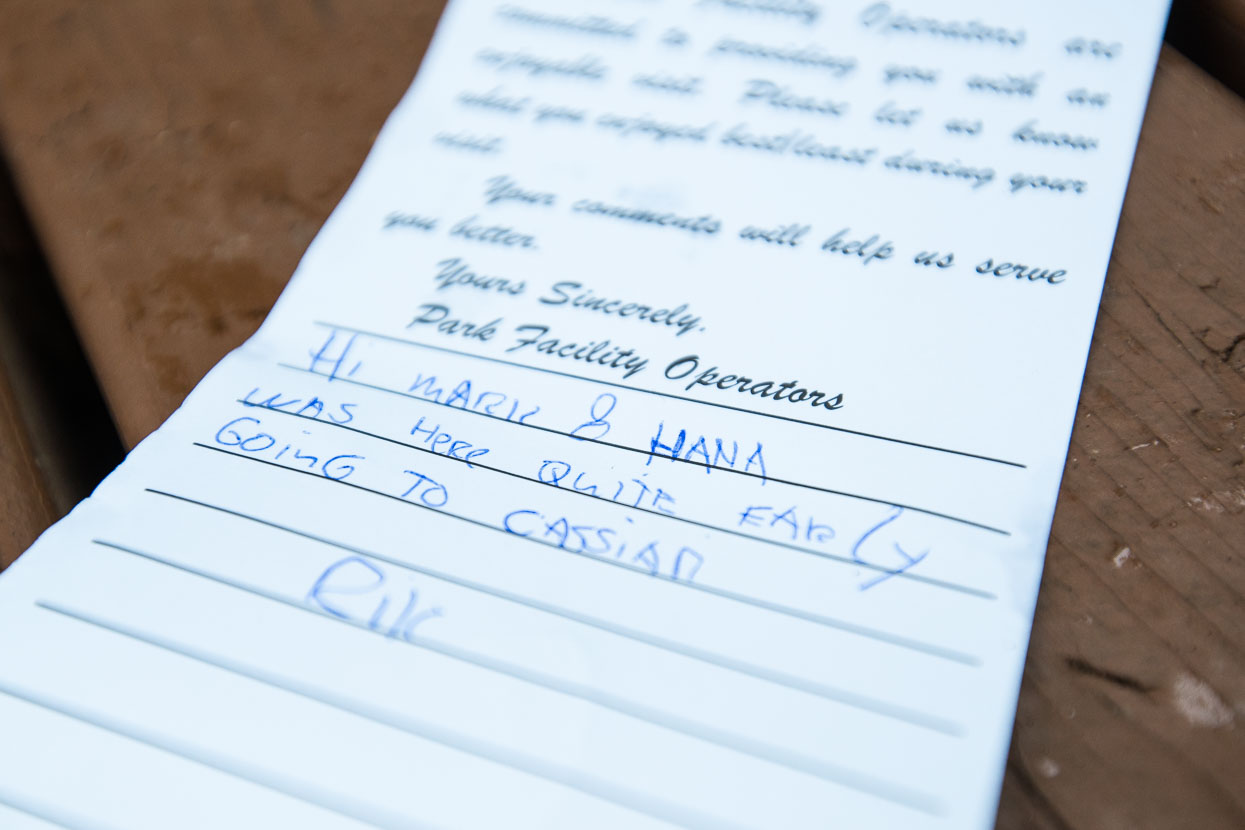 Facility Operators are
committed to providing you with an
enjoyable visit. Please let us know
what you enjoyed best/least during your
visit.
Your comments will help us serve
you better.
Yours Sincerely,
Park Facility Operators
Hi MARK & HANA
WAS HERE QUITE EARLY
GOING TO CASSIAR
Rik